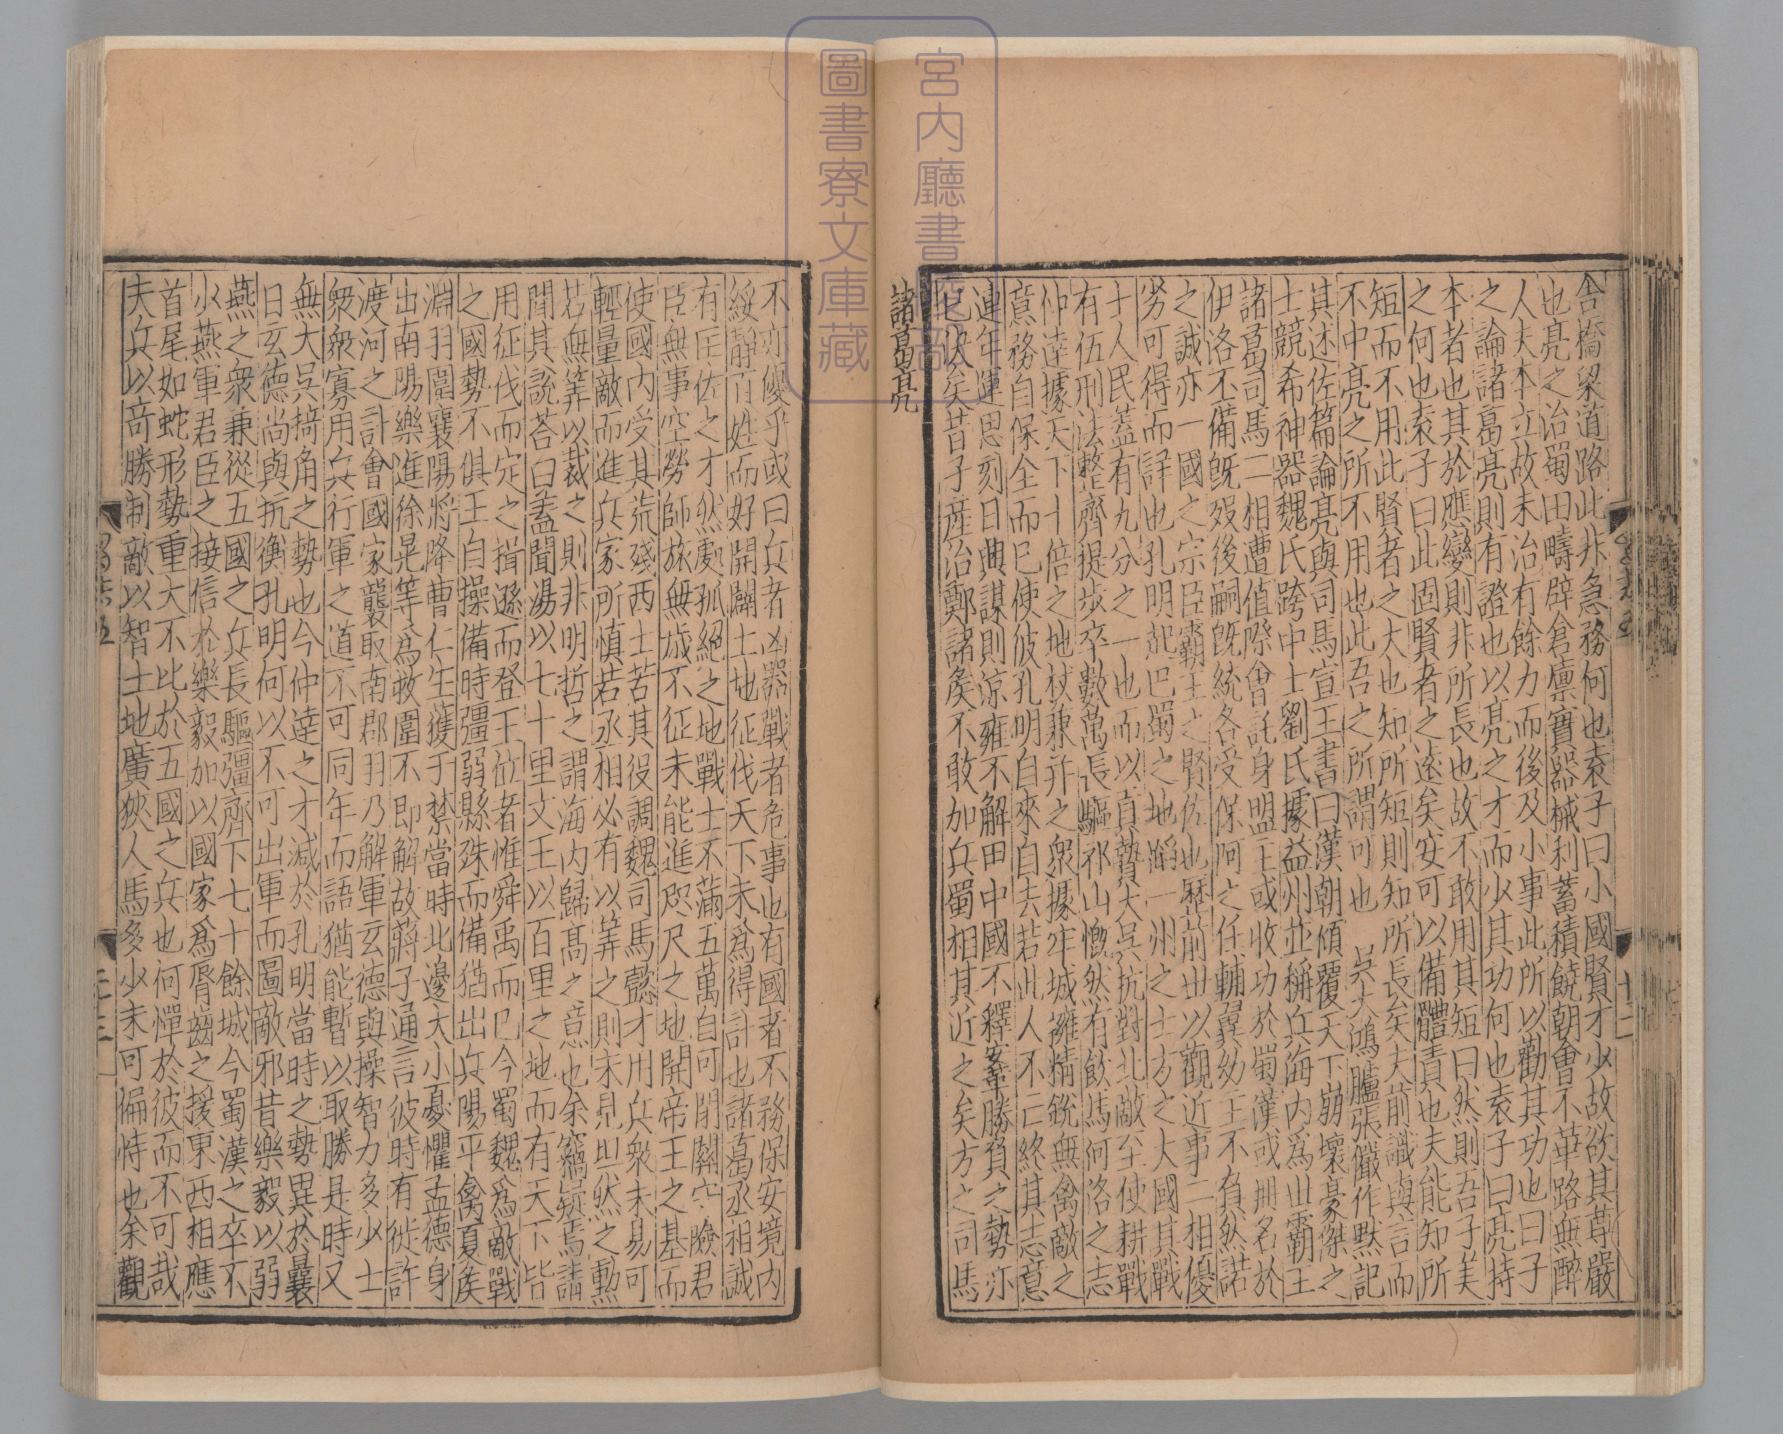 宮内廳書陵部
圖書寮文庫藏
舎橋梁道路此非急務何也袁子曰小國賢才少故欲其尊嚴
也亮之治蜀田疇辟倉廪實器械利蓄積饒朝會不華路無醉
人夫本立故末治有餘力而後及小事此所以勸其功也曰子
之論諸葛亮則有證也以亮之才而少其功何也袁子曰亮持
本者也其於應變則非所長也故不敢用其短曰然則吾子美
之何也袁子曰此固賢者之逺矣安可以備體責也夫能知所
短而不用此賢者之大也知所短則知所長矣夫前識與言而
不中亮之所不用也此吾之所謂可也 吳大鴻臚張儼作默記
其述佐篇論亮與司馬宣王書曰漢朝傾覆天下崩壞豪傑之
士競希神器魏氏跨中土劉氏據益州並稱兵海内爲世霸王
諸葛司馬二相遭值際會託身盟主或收功於蜀漢或册名於
伊洛丕備旣歿後嗣旣統各受保阿之任輔翼幼主不負然諾
之誠亦一國之宗臣霸王之賢佐也歷前世以觀近事二相優
劣可得而詳也孔明起巴蜀之地蹈一州之士方之大國其戰
士人民蓋有九分之一也而以貢贄大吳抗對北敵至使耕戰
有伍刑法整齊提歩卒數萬長驅祁山慨然有飲馬河洛之志
仲達據天下十倍之地杖兼并之衆據牢城擁精銳無禽敵之
意務自保全而已使彼孔明自來自去若此人不亡終其志意
連年運思刻日興謀則凉雍不解甲中國不釋鞌勝負之勢亦
已決矣昔子産治鄭諸侯不敢加兵蜀相其近之矣方之司馬
諸葛亮
不亦優乎或曰兵者凶器戰者危事也有國者不務保安境内
綏靜百姓而好開闢土地征伐天下未爲得計也諸葛丞相誠
有匡佐之才然處孤絕之地戰士不滿五萬自可閉關守險君
臣無事空勞師旅無歳不征未能進咫尺之地開帝王之基而
使國内受其荒殘西土苦其役調魏司馬懿才用兵衆未易可
輕量敵而進兵家所慎若丞相必有以筭之則未見坦然之勲
若無筭以裁之則非明哲之謂海内歸髙之意也余竊疑焉請
聞其說荅曰蓋聞湯以七十里文王以百里之地而有天下皆
用征伐而定之揖遜而登王位者惟舜禹而已今蜀魏爲敵戰
之國勢不俱王自操備時彊弱縣殊而備猶出兵陽平禽夏侯
淵羽圍襄陽將降曹仁生獲于禁當時北邊大小憂懼孟德身
出南陽樂進徐晃等爲救圍不即解故蔣子通言彼時有徙許
渡河之計會國家襲取南郡羽乃解軍玄德與操智力多少士
衆衆寡用兵行軍之道不可同年而語猶能暫以取勝是時又
無大吳掎角之勢也今仲達之才減於孔明當時之勢異於曩
日玄德尚與抗衡孔明何以不可出軍而圖敵邪昔樂毅以弱
燕之衆兼從五國之兵長驅彊齊下七十餘城今蜀漢之卒不
少燕軍君臣之接信於樂毅加以國家爲脣齒之援東西相應
首尾如蛇形勢重大不比於五國之兵也何憚於彼而不可哉
夫兵以奇勝制敵以智土地廣狄人馬多少未可偏恃也余觀